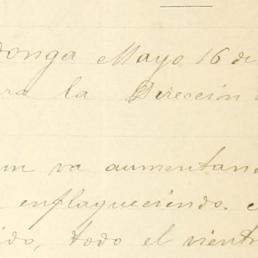 donga Mayo 16 de
la Direccion
va aumentan
enflaqueciendo.
ido, todo el vientr